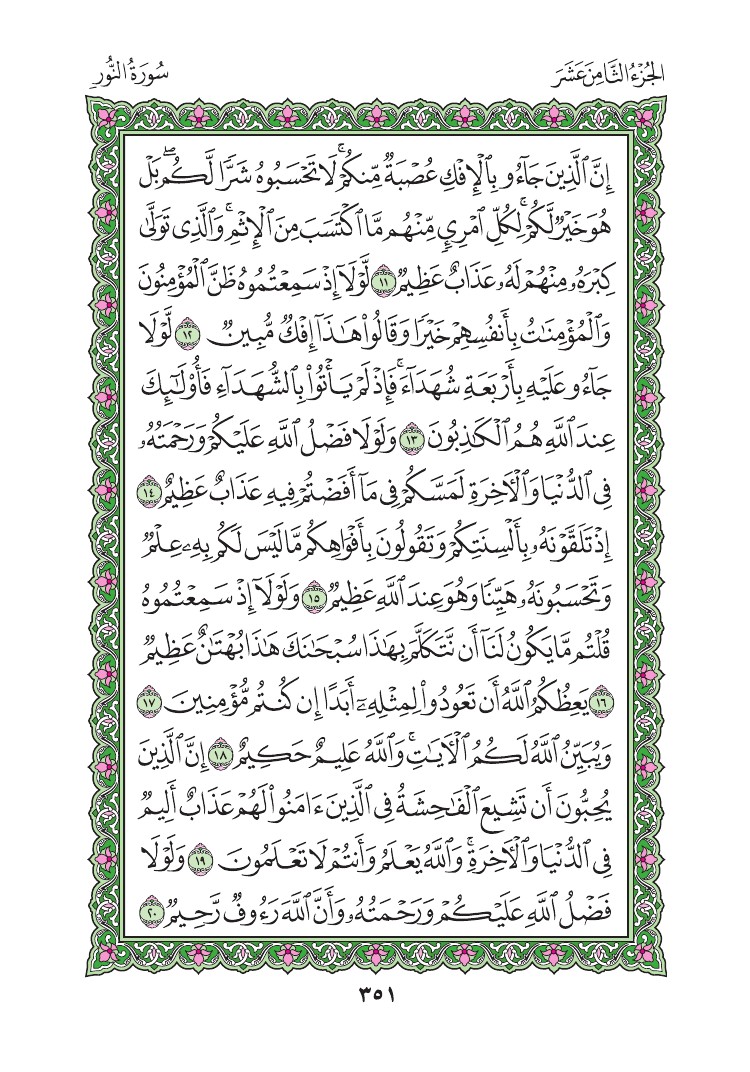 الجُزْءُ الثَّامِنَ عَشَرَ
سُورَةُ النُّورِ
إِنَّ ٱلَّذِينَ جَآءُو بِٱلۡإِفۡكِ عُصۡبَةٞ مِّنكُمۡۚ لَا تَحۡسَبُوهُ شَرّٗا لَّكُمۖ بَلۡ
هُوَ خَيۡرٞ لَّكُمۡۚ لِكُلِّ ٱمۡرِيٕٖ مِّنۡهُم مَّا ٱكۡتَسَبَ مِنَ ٱلۡإِثۡمِۚ وَٱلَّذِي تَوَلَّىٰ
كِبۡرَهُۥ مِنۡهُمۡ لَهُۥ عَذَابٌ عَظِيمٞ ١١ لَّوۡلَآ إِذۡ سَمِعۡتُمُوهُ ظَنَّ ٱلۡمُؤۡمِنُونَ
وَٱلۡمُؤۡمِنَٰتُ بِأَنفُسِهِمۡ خَيۡرٗا وَقَالُواْ هَٰذَآ إِفۡكٞ مُّبِينٞ ١٢ لَّوۡلَا
جَآءُو عَلَيۡهِ بِأَرۡبَعَةِ شُهَدَآءَۚ فَإِذۡ لَمۡ يَأۡتُواْ بِٱلشُّهَدَآءِ فَأُوْلَٰٓئِكَ
عِندَ ٱللَّهِ هُمُ ٱلۡكَٰذِبُونَ ١٣ وَلَوۡلَا فَضۡلُ ٱللَّهِ عَلَيۡكُمۡ وَرَحۡمَتُهُۥ
فِي ٱلدُّنۡيَا وَٱلۡأٓخِرَةِ لَمَسَّكُمۡ فِي مَآ أَفَضۡتُمۡ فِيهِ عَذَابٌ عَظِيمٌ ١٤
إِذۡ تَلَقَّوۡنَهُۥ بِأَلۡسِنَتِكُمۡ وَتَقُولُونَ بِأَفۡوَاهِكُم مَّا لَيۡسَ لَكُم بِهِۦ عِلۡمٞ
وَتَحۡسَبُونَهُۥ هَيِّنٗا وَهُوَ عِندَ ٱللَّهِ عَظِيمٞ ١٥ وَلَوۡلَآ إِذۡ سَمِعۡتُمُوهُ
قُلۡتُم مَّا يَكُونُ لَنَآ أَن نَّتَكَلَّمَ بِهَٰذَا سُبۡحَٰنَكَ هَٰذَا بُهۡتَٰنٌ عَظِيمٞ
١٦ يَعِظُكُمُ ٱللَّهُ أَن تَعُودُواْ لِمِثۡلِهِۦٓ أَبَدًا إِن كُنتُم مُّؤۡمِنِينَ ١٧
وَيُبَيِّنُ ٱللَّهُ لَكُمُ ٱلۡأٓيَٰتِۚ وَٱللَّهُ عَلِيمٌ حَكِيمٌ ١٨ إِنَّ ٱلَّذِينَ
يُحِبُّونَ أَن تَشِيعَ ٱلۡفَٰحِشَةُ فِي ٱلَّذِينَ ءَامَنُواْ لَهُمۡ عَذَابٌ أَلِيمٞ
فِي ٱلدُّنۡيَا وَٱلۡأٓخِرَةِۚ وَٱللَّهُ يَعۡلَمُ وَأَنتُمۡ لَا تَعۡلَمُونَ ١٩ وَلَوۡلَا
فَضۡلُ ٱللَّهِ عَلَيۡكُمۡ وَرَحۡمَتُهُۥ وَأَنَّ ٱللَّهَ رَءُوفٞ رَّحِيمٞ ٢٠
٣٥١